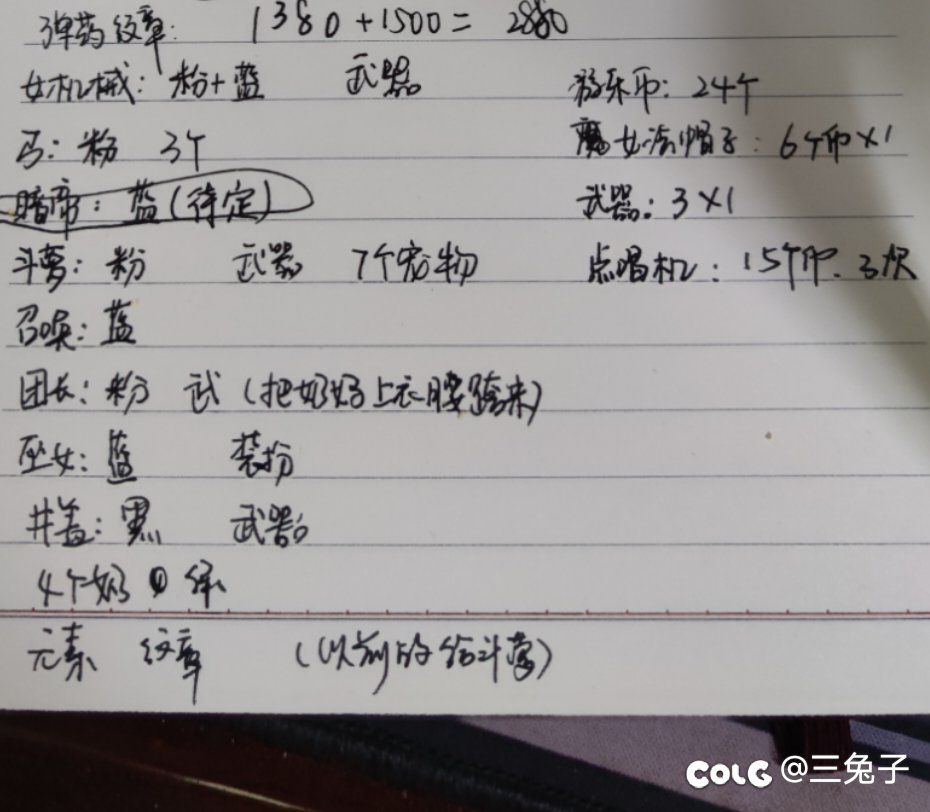 弹药纹章: 1380+1500= 2880
女机械: 粉+蓝 武器 游乐币: 24个
弓: 粉 3个 魔女法帽子: 6个币×1
暗帝: 蓝(待定) 武器: 3×1
斗萝: 粉 武器 7个宠物 点唱机: 15个币. 3次
召唤: 蓝
团长: 粉 武(把奶奶上衣腰跨来)
巫女: 蓝 装扮
井盖: 黑 武器
4个奶 绿
元素 纹章 (以前的给斗萝)
COLG @三兔子